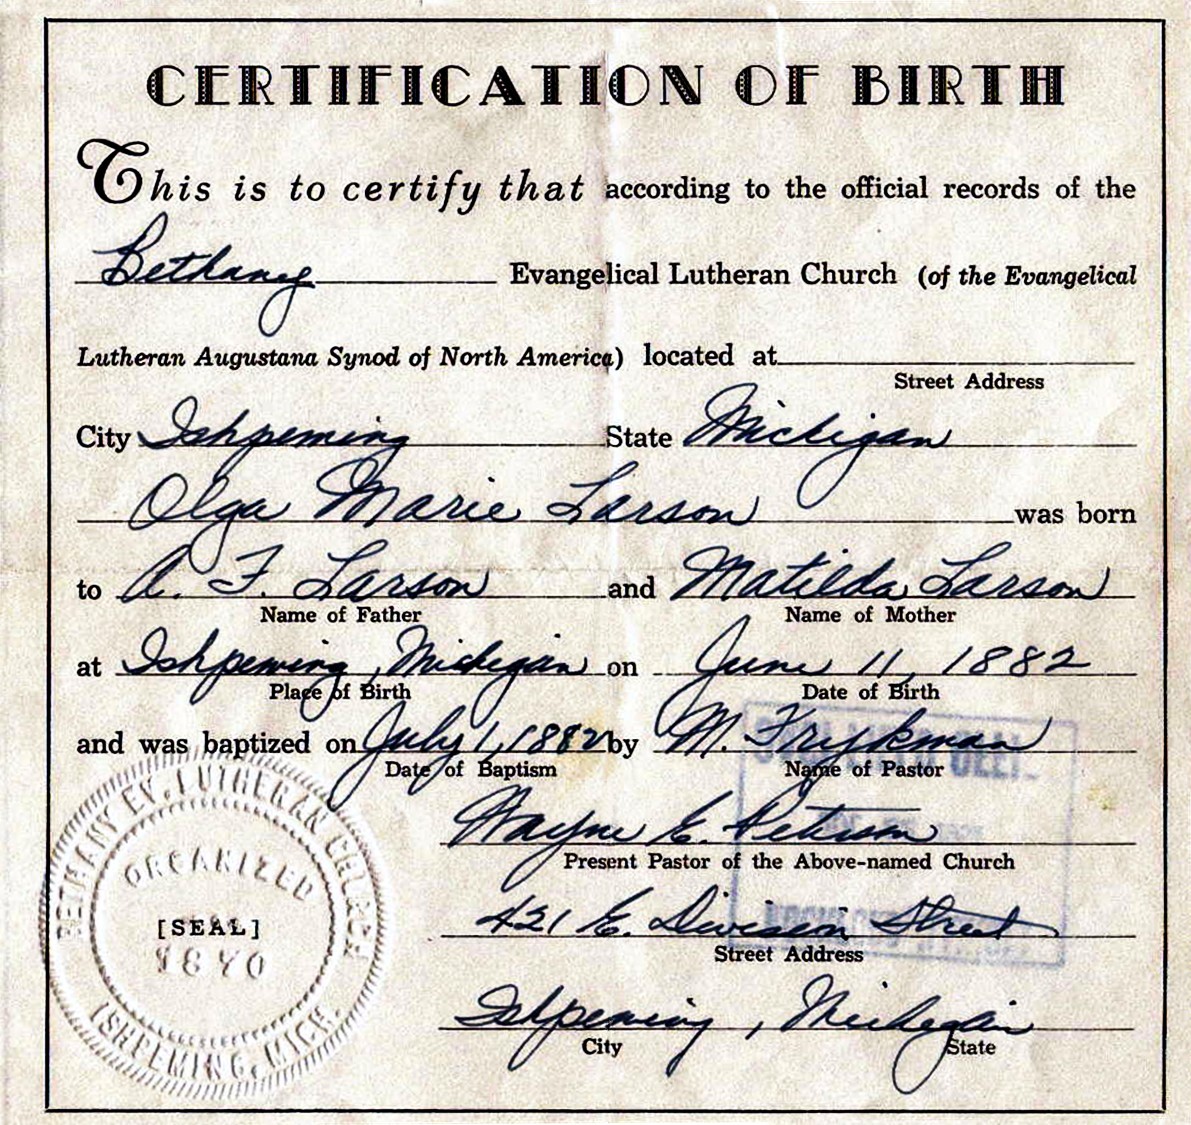 CERTIFICATION OF BIRTH
This is to certify that according to the official records of the
Bethany Evangelical Lutheran Church (of the Evangelical
Lutheran Augustana Synod of North America) located at
Street Address
City Ishpeming State Michigan
Olga Marie Larson was born
to A. F. Larson and Matilda Larson
Name of Father Name of Mother
at Ishpeming, Michigan on June 11, 1882
Place of Birth Date of Birth
and was baptized on July 1, 1882 by M. Frykman
Date of Baptism Name of Pastor
Wayne E. Peterson
Present Pastor of the Above-named Church
421 E. Division Street
Street Address
Ishpeming, Michigan
City State
BETHANY EV. LUTHERAN CHURCH
ORGANIZED
[SEAL]
1870
ISHPEMING, MICH.